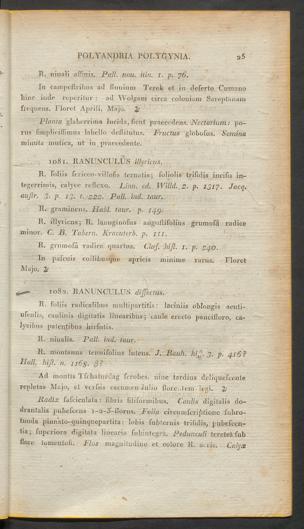 POLYANDRIA POLYGYNIA. 25
R. nivali affinis. Pall. nou. itin. 1. p. 76.
In campestribus ad flunium Terek et in deserto Cumano
hinc inde reperitur: ad Wolgam circa coloniam Sareptanam
frequens. Floret Aprili, Majo. ♃
Planta glaberrima lucida, sicut praecedens. Nectarium: po-
rus simplicissimus labello destitutus. Fructus globosus. Semina
minuta mutica, ut in praecedente.
1081. RANUNCULUS illyricus.
R. foliis sericeo-villosis ternatis; foliolis trifidis incisis in-
tegerrimis, calyce reflexo. Linn. ed. Willd. 2. p. 1317. Jacq.
austr. 3. p. 13. t. 222. Pall. ind. taur.
R. gramineus. Habl. taur. p. 149.
R. illyricus; R. lanuginosus angustifolius grumosa radice
minor. C. B. Tabern. Kraeuterb. p. 111.
R. grumosa radice quartus. Clus. hist. 1. p. 240.
In pascuis collibusque apricis minime rarus. Floret
Majo. ♃
1082. RANUNCULUS dissectus.
R. foliis radicalibus multipartitis: laciniis oblongis acuti-
usculis, caulinis digitatis linearibus; caule erecto paucifloro, ca-
lycibus patentibus hirsutis.
R. nivalis. Pall. ind. taur.
R. montanus tenuifolius luteus. J. Bauh. hist. 3. p. 416?
Hall. hist. n. 1168. β?
Ad montis Tschaturdag scrobes, niue tardius deliquescente
repletas Majo, et versus cacumen Julio florentem legi. ♃
Radix fasciculata: fibris filiformibus. Caulis digitalis do-
drantalis pubescens 1-2-3-florus. Folia circumscriptione subro-
tunda pinnato-quinquepartita: lobis subternis trifidis, pubescen-
tia; superiora digitata linearia subintegra. Pedunculi teretes sub
flore tomentosi. Flos magnitudine et colore R. acris. Calyx